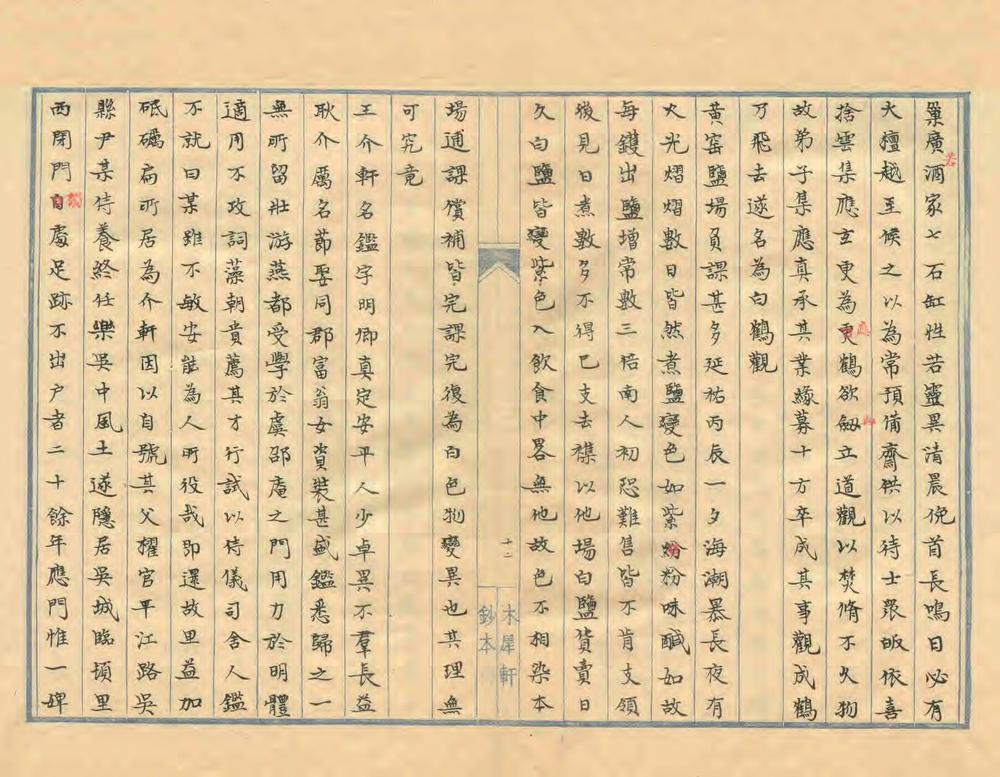 巢廣酒家七石缸性若靈異清晨俛首長鳴日必有
若
大檀越至候之以為常預備齋供以待士眾皈依喜
捨雲集應玄更為更鶴欲刱立道觀以焚脩不久物
應
故弟子集應真承其業緣募十方卒成其事觀成鶴
乃飛去遂名為白鶴觀
黃窑鹽場負課甚多延祐丙辰一夕海潮暴長夜有
火光熠熠數日皆然煮鹽變色如紫粉粉味鹹如故
每鑊出鹽增常數三倍南人初恐難售皆不肯支領
後見日煮數多不得已支去襍以他場白鹽貨賣日
久白鹽皆變紫色入飲食中畧無他故色不相染本
十二
木犀軒
鈔本
場逋課償補皆完課完復為白色物變異也其理無
可究竟
王介軒名鑑字明卿真定安平人少卓異不羣長益
耿介厲名節娶同郡富翁女資裝甚盛鑑悉歸之一
無所留壯游燕都受學於虞邵庵之門用力於明體
適用不攻詞藻朝貴薦其才行試以侍儀司舍人鑑
不就曰某雖不敏安能為人所役哉即還故里益加
砥礪扁所居為介軒因以自號其父擢官平江路吳
縣尹某侍養終任樂吳中風土遂隱居吳城臨頓里
西閉門自處足跡不出户者二十餘年應門惟一婢
獨